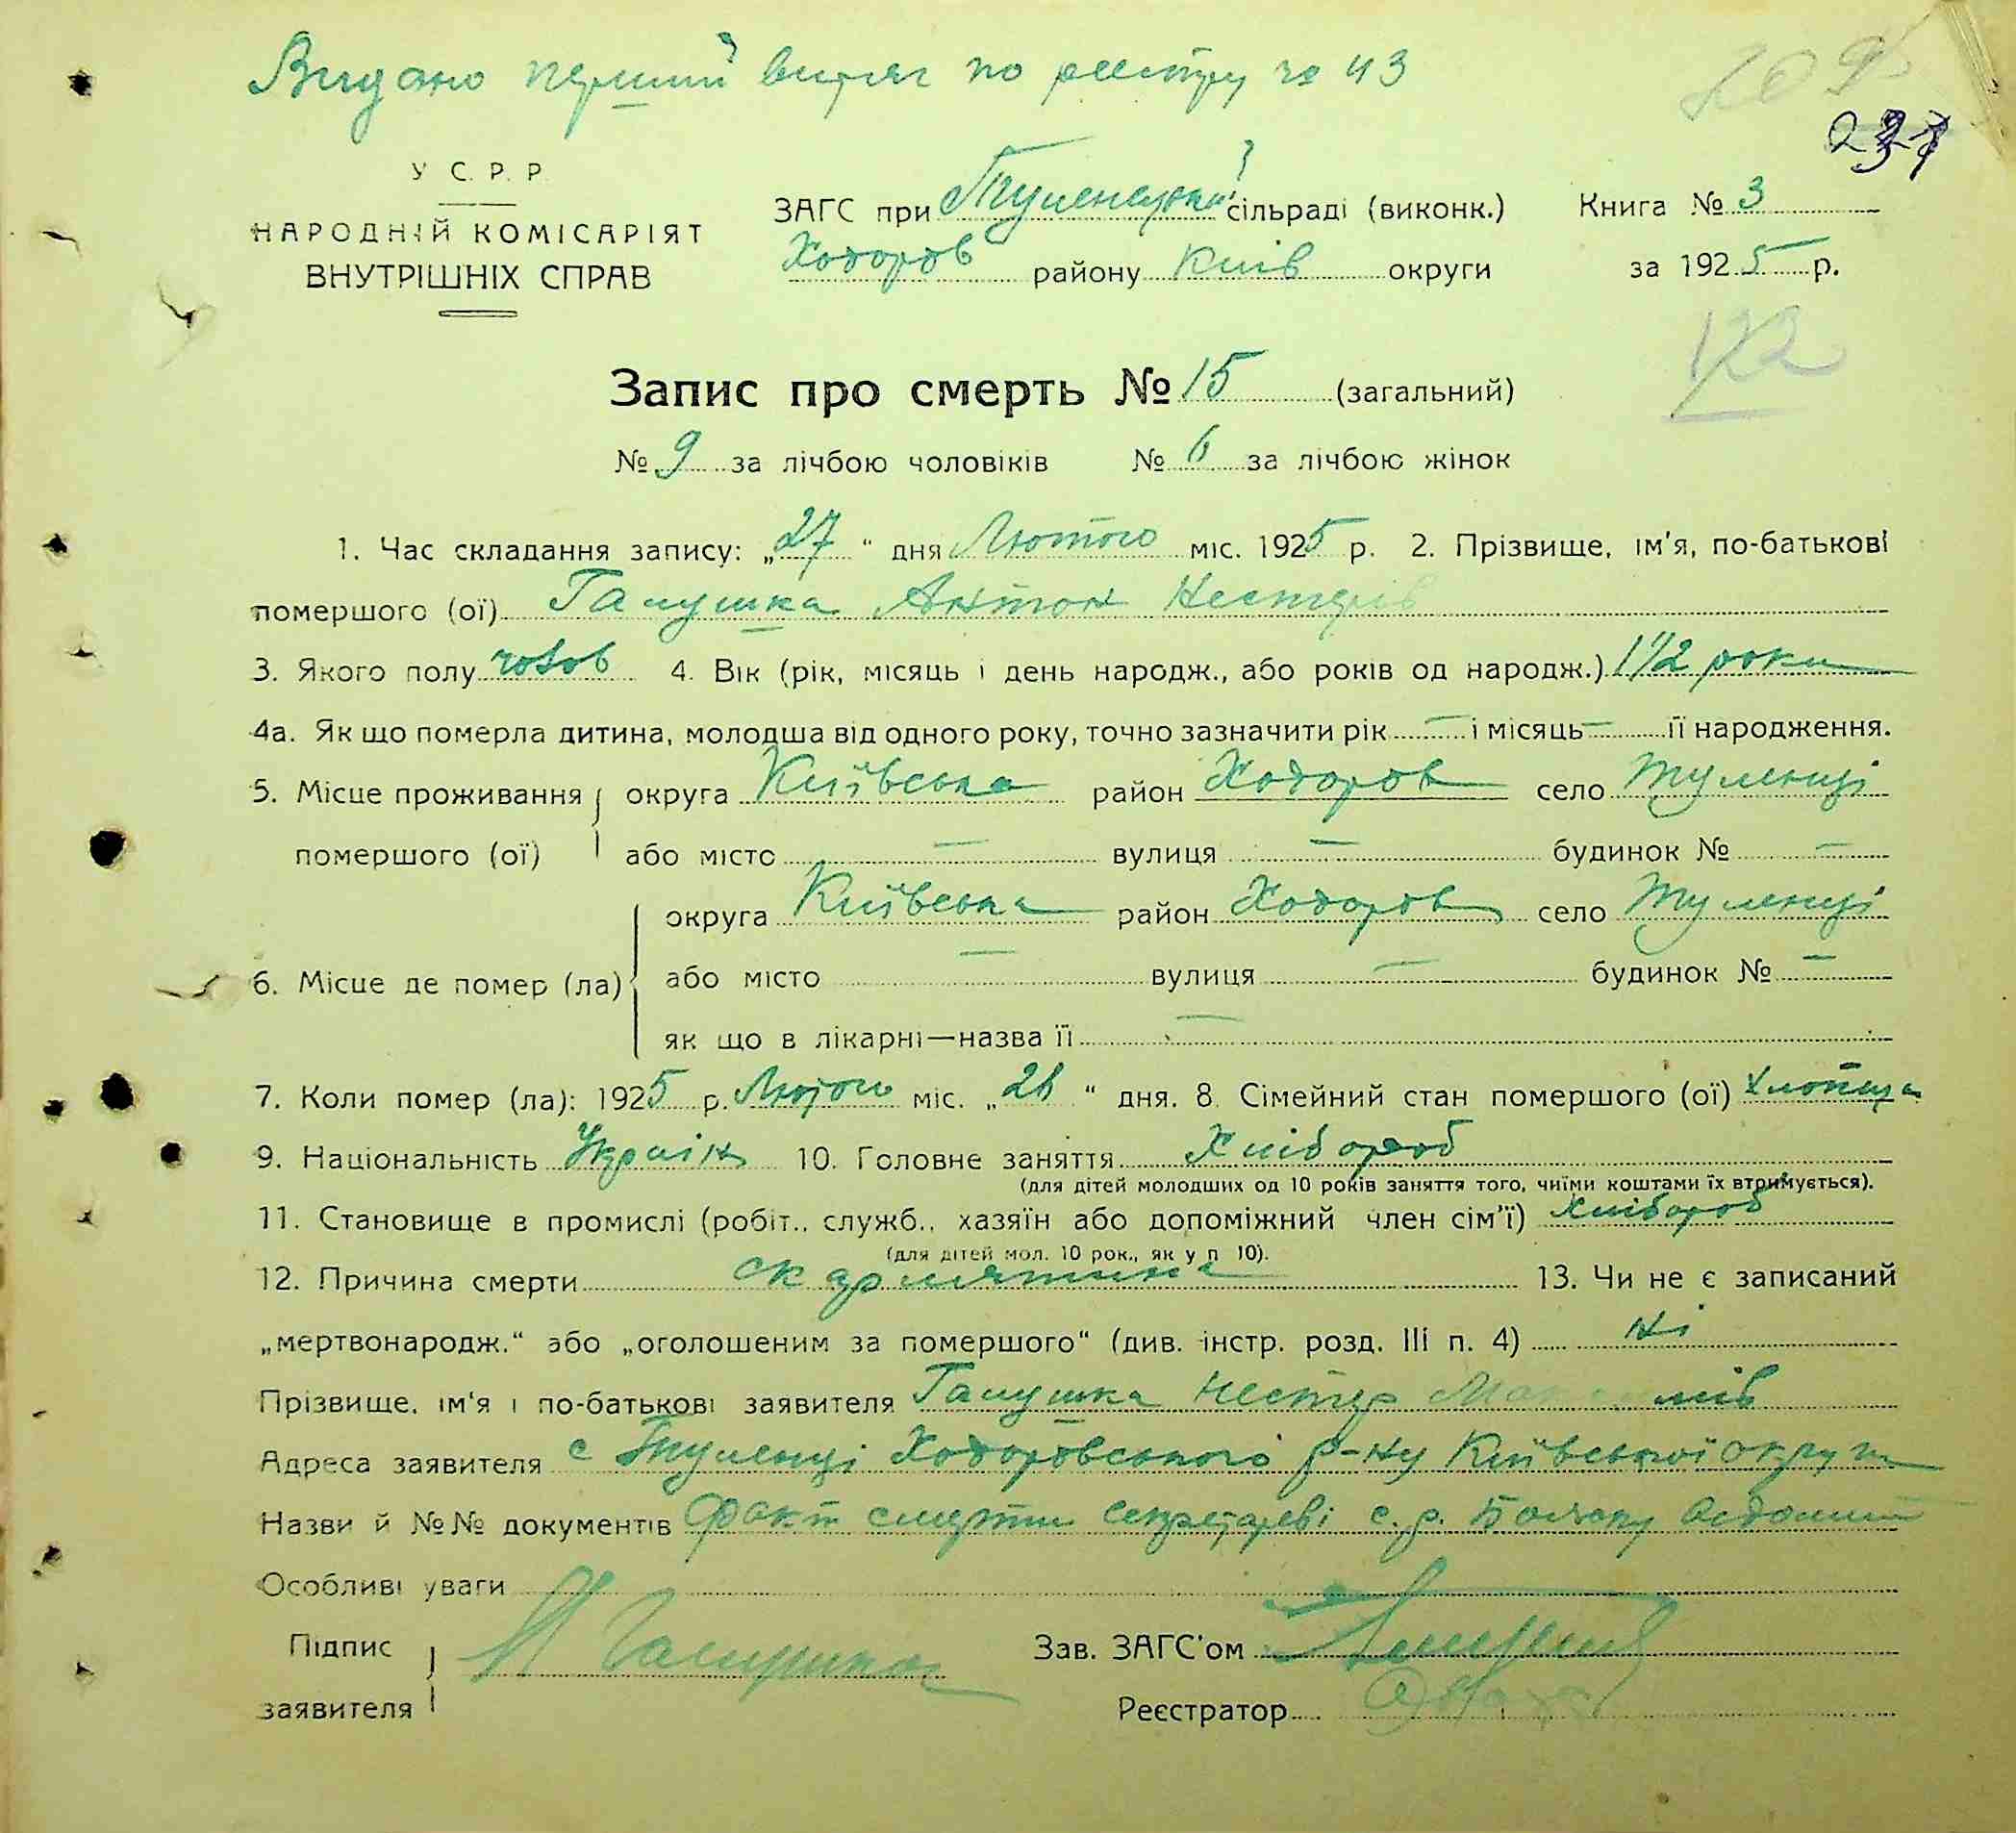 Видано перший витяг по реєстру № 43
209
231
У С. Р. Р.
НАРОДНІЙ КОМІСАРІЯТ
ВНУТРІШНІХ СПРАВ
ЗАГС при Тулинецькій сільраді (виконк.) Книга № 3
Ходоров району Київ округи за 1925 р.
122
Запис про смерть № 15 (загальний)
№ 9 за лічбою чоловіків № 6 за лічбою жінок
1. Час складання запису: „27“ дня Лютого міс. 1925 р. 2. Прізвище, ім'я, по-батькові
помершого (ої) Галушка Антон Нестерів
3. Якого полу чолов 4. Вік (рік, місяць і день народж., або років од народж.) 1 1/2 роки
4а. Як що померла дитина, молодша від одного року, точно зазначити рік — і місяць — її народження.
5. Місце проживання округа Київська район Ходоров село Тулинці
помершого (ої) або місто — вулиця — будинок № —
округа Київська район Ходоров село Тулинці
6. Місце де помер (ла) або місто — вулиця — будинок № —
як що в лікарні—назва її —
7. Коли помер (ла): 1925 р. Лютого міс. „21“ дня. 8. Сімейний стан помершого (ої) хлопець
9. Національність Україн 10. Головне заняття Хлібороб
(для дітей молодших од 10 років заняття того, чиїми коштами їх втримується).
11. Становище в промислі (робіт., служб., хазяїн або допоміжний член сім'ї) хлібороб
(для дітей мол. 10 рок., як у п 10).
12. Причина смерти скарлятина 13. Чи не є записаний
„мертвонародж.“ або „оголошеним за помершого“ (див. інстр. розд. III п. 4) ні
Прізвище, ім'я і по-батькові заявителя Галушка Нестер Максимів
Адреса заявителя с Тулинці Ходоровського р-ну Київської округи
Назви й №№ документів Факт смерти секретареві с. р. відомий
Особливі уваги
Підпис Н Галушка Зав. ЗАГС'ом
заявителя Реєстратор